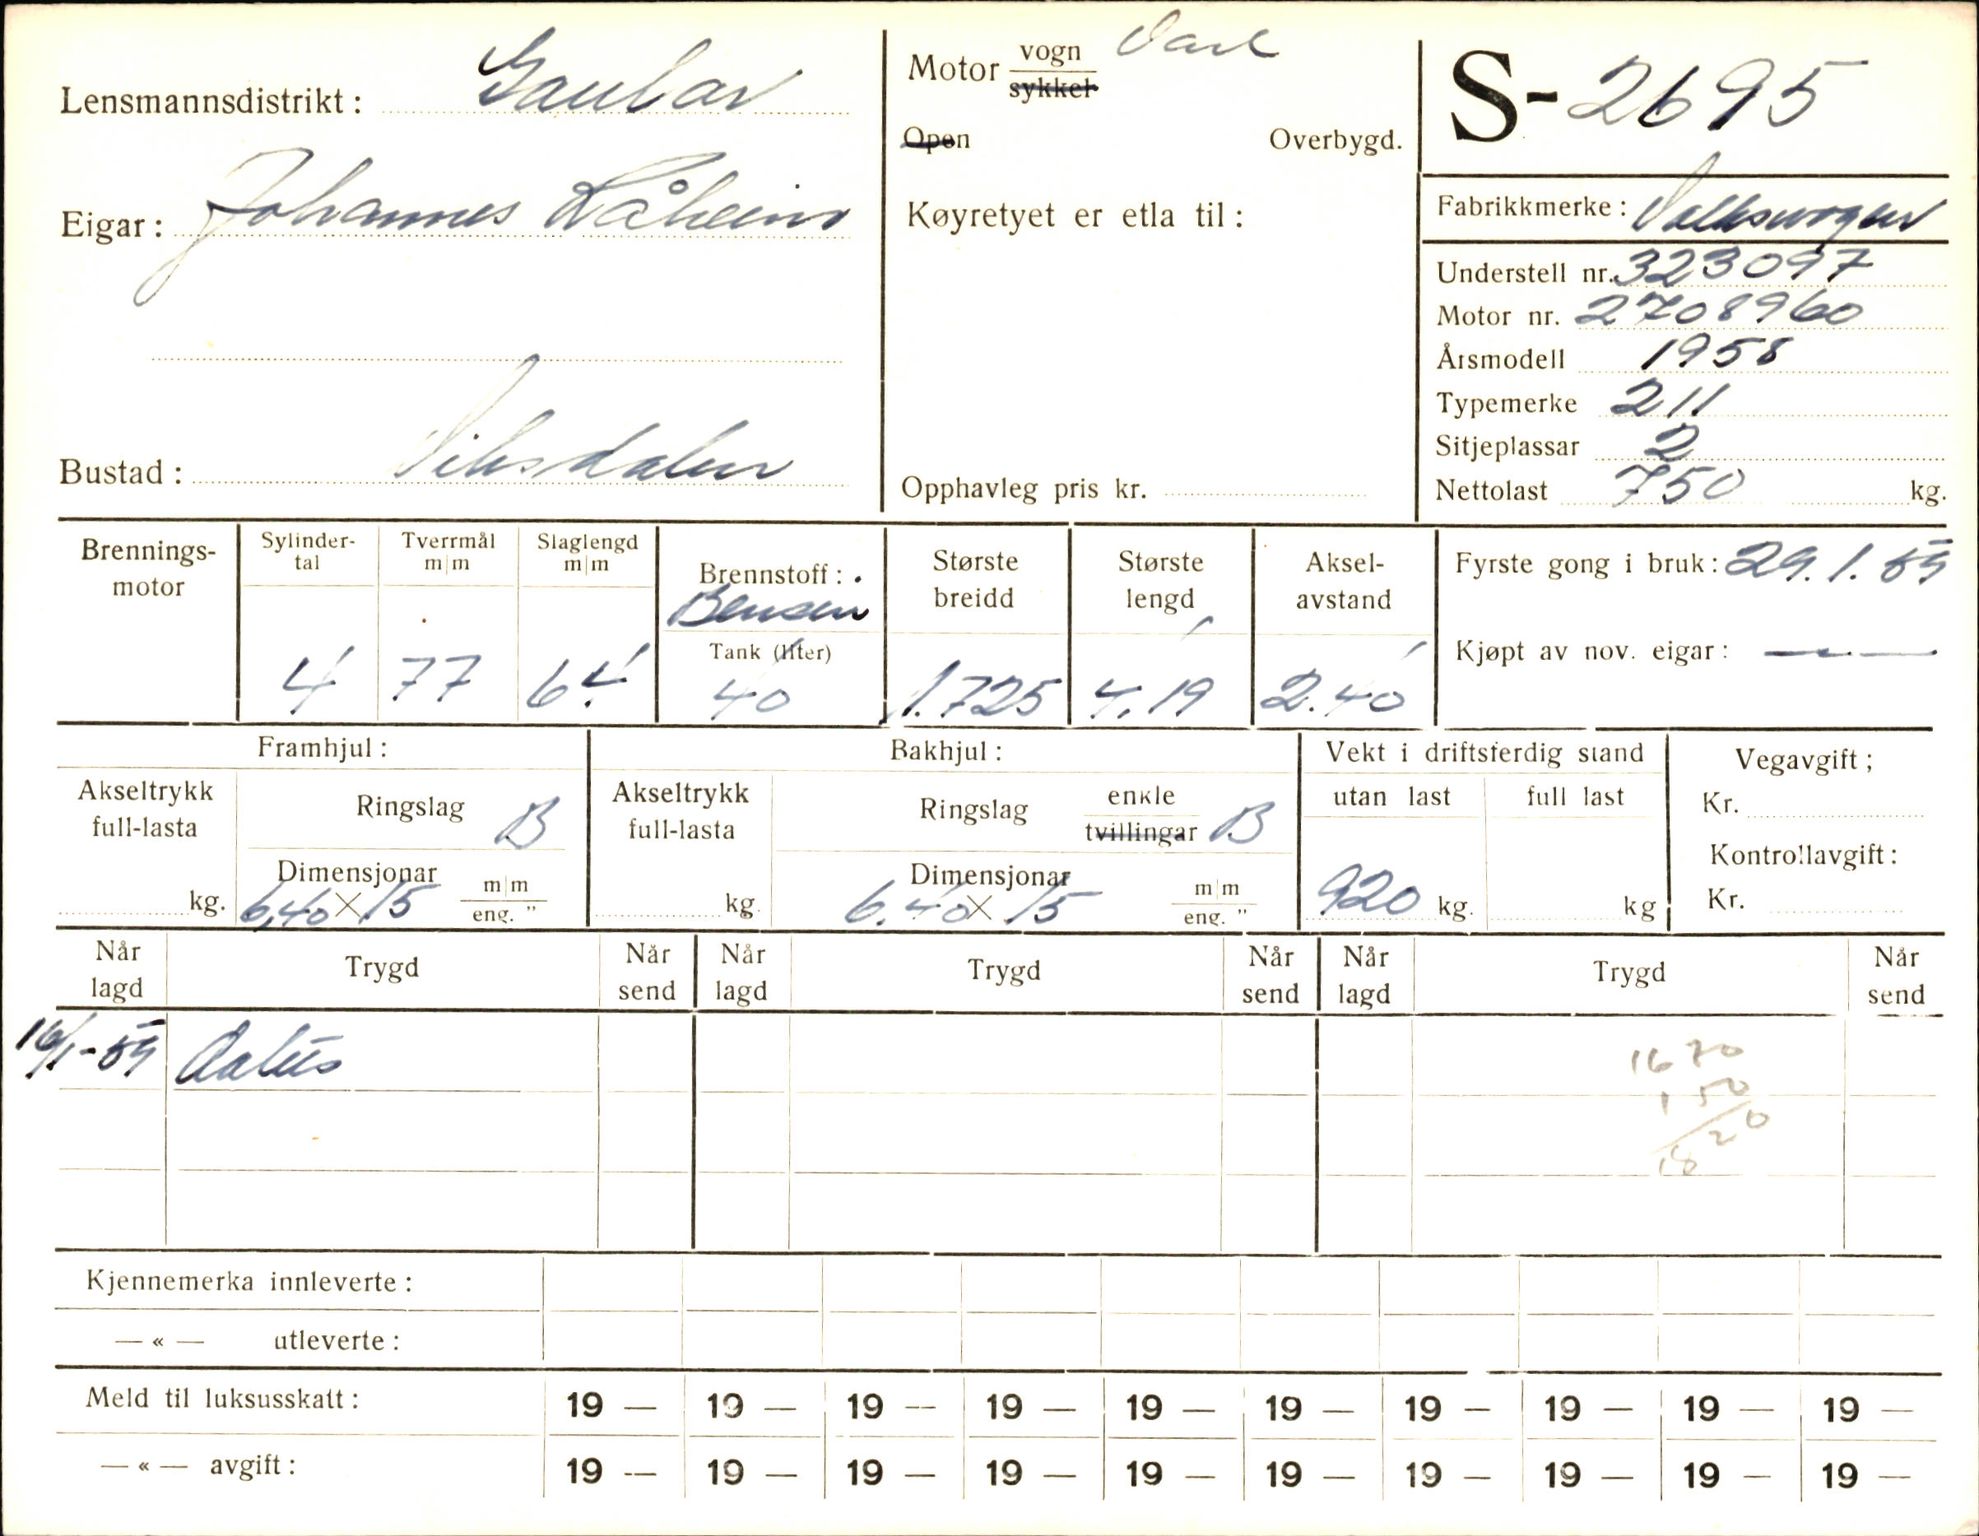 Lensmannsdistrikt: Gaular
Eigar: Johannes Råheim
Bustad: Viksdalen
Motor vogn Vare
sykkel
Open Overbygd.
Køyretyet er etla til:
Opphavleg pris kr.
S-2695
Fabrikkmerke: Volkswogen
Understell nr. 323097
Motor nr. 2708960
Årsmodell 1958
Typemerke 211
Sitjeplassar 2
Nettolast 750 kg.
Brennings-
motor
Sylinder-
tal
4
Tverrmål
m|m
77
Slaglengd
m|m
64
Brennstoff:
Bensin
Tank (liter)
40
Største
breidd
1.725
Største
lengd
4,19
Aksel-
avstand
2.40
Fyrste gong i bruk: 29.1.59
Kjøpt av nov. eigar: —
Framhjul:
Akseltrykk
full-lasta
kg.
Ringslag B
Dimensjonar
6,40 x 15 m|m
eng. "
Bakhjul:
Akseltrykk
full-lasta
kg.
Ringslag enkle
tvillingar B
Dimensjonar
6.40 x 15 m|m
eng. "
Vekt i driftsferdig stand
utan last full last
920 kg. kg
Vegavgift;
Kr.
Kontrollavgift:
Kr.
Når
lagd Trygd Når
send Når
lagd Trygd Når
send Når
lagd Trygd Når
send
16/1-59
1670
150
1820
Kjennemerka innleverte:
— « — utleverte:
Meld til luksusskatt: 19 — 19 — 19 — 19 — 19 — 19 — 19 — 19 — 19 — 19 —
— « — avgift: 19 — 19 — 19 — 19 — 19 — 19 — 19 — 19 — 19 — 19 —